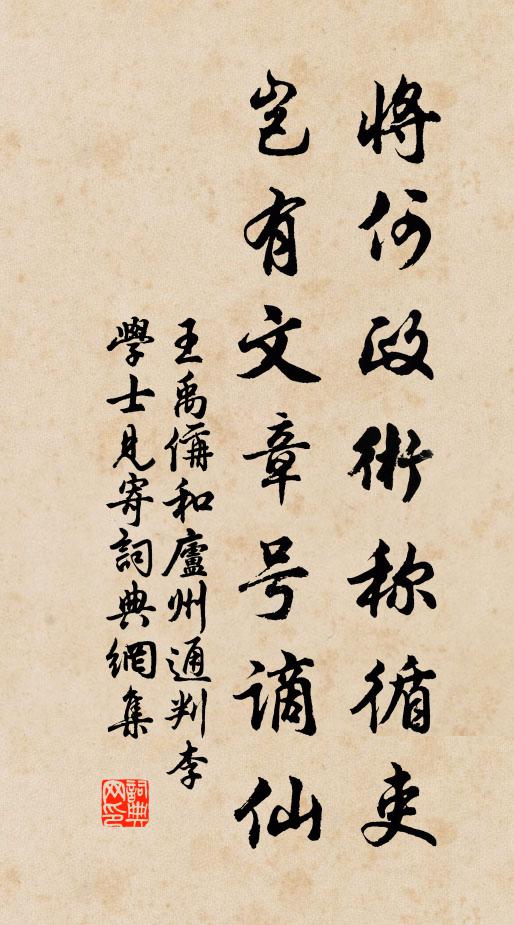 将何政術称循吏
岂有文章号谪仙
王禹偁和廬州通判李
學士見寄詞典網集
詞典网印